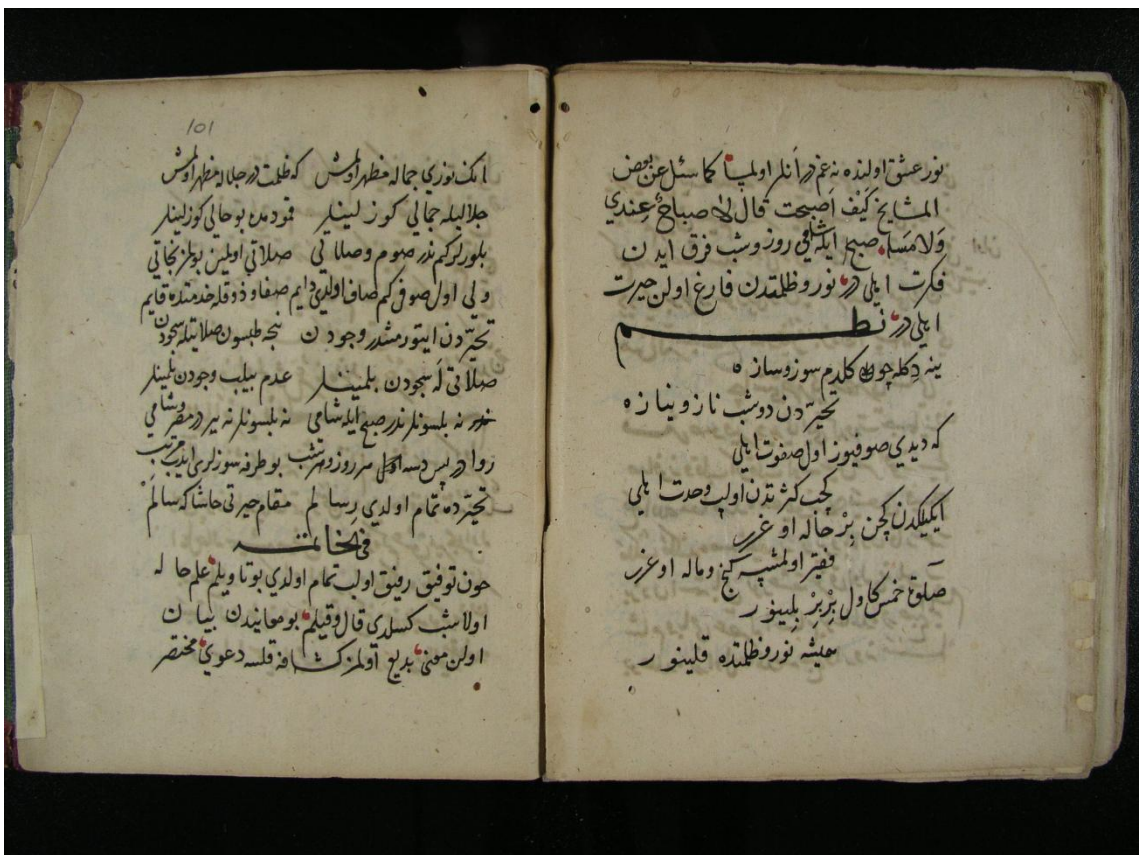 نور عشق اولنده نه غم در آنلر اولمسا كما سئل عن بعض
المشايخ كَيْفَ اَصبحت قال لا صباحَ عِندي
وَلا مَسَاء صبح ايله شامي روز و شب فرق ايدن
فكرت ايلي در نور و ظلمتدن فارغ اولن حيرت
ايلي در نظم
ينه دِكله چون كلدم سوز و سازه
تحيّر دن دوشب ناز و نيازه
كه ديدي صوفيوز اول صفوت ايلي
كچب كثرتدن اولب وحدت ايلي
ايكيلكدن كچن بِرْ حاله اوغرر
فقير اولمشيه كنج و ماله اوغرر
صلوة خمس كاول بِرْ بِرْ بِلينور
هميشه نور و ظلمتده قلينور
101
انك نوري جماله مظهر اولمش كه ظلمت در جلاله مظهر اولمش
جلاليله جمالي كوزلينلر قمودمده بو حالي كوزلينلر
بلورلر كم ندر صوم و صلاتي صلاتي اولين بولمز نجاتي
ولي اول صوفي كم صاف اولدي دايم صفا و ذوقله خدمتده قايم
تحيّر دن ايتورمشدر وجودن نيجه طبسون صلاتيله سجودن
صلاتي لَه سجودن بلمينلر عدم بيلب وجودن بلمينلر
نه بلسونلر ندر صبح ايله شامي نه بلسونلر نه ير در مصر و شامي
روا در پس دسه هر روز و هر شب بو طرفه سوزلري ايدب مرتب
تحيّرده تمام اولدي رِسالم مقام حيرتي حاشا كه سالم
في الخاتمه
چون توفيق رفيق اولب تمام اولدي بو تاويلم علم حاله
اولاشب كسلدي قال و قيلم بو معانيدن بيان
اولن معنى بديع اولمز كشافه قلسه دعوي مختصر